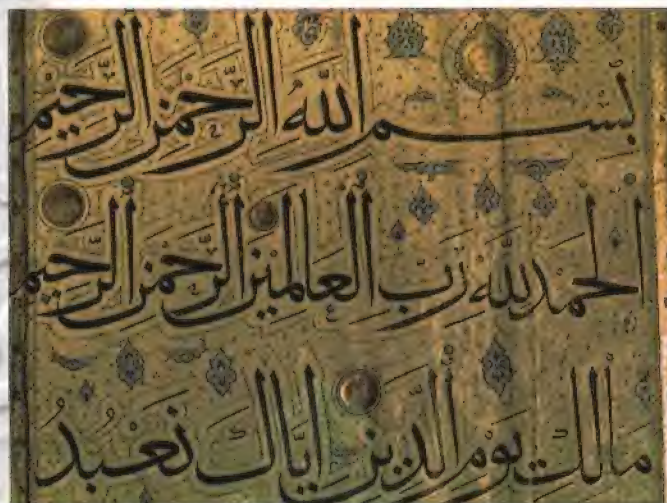 بسم الله الرحمن الرحيم
الحمد لله رب العالمين الرحمن الرحيم
مالك يوم الدين اياك نعبد